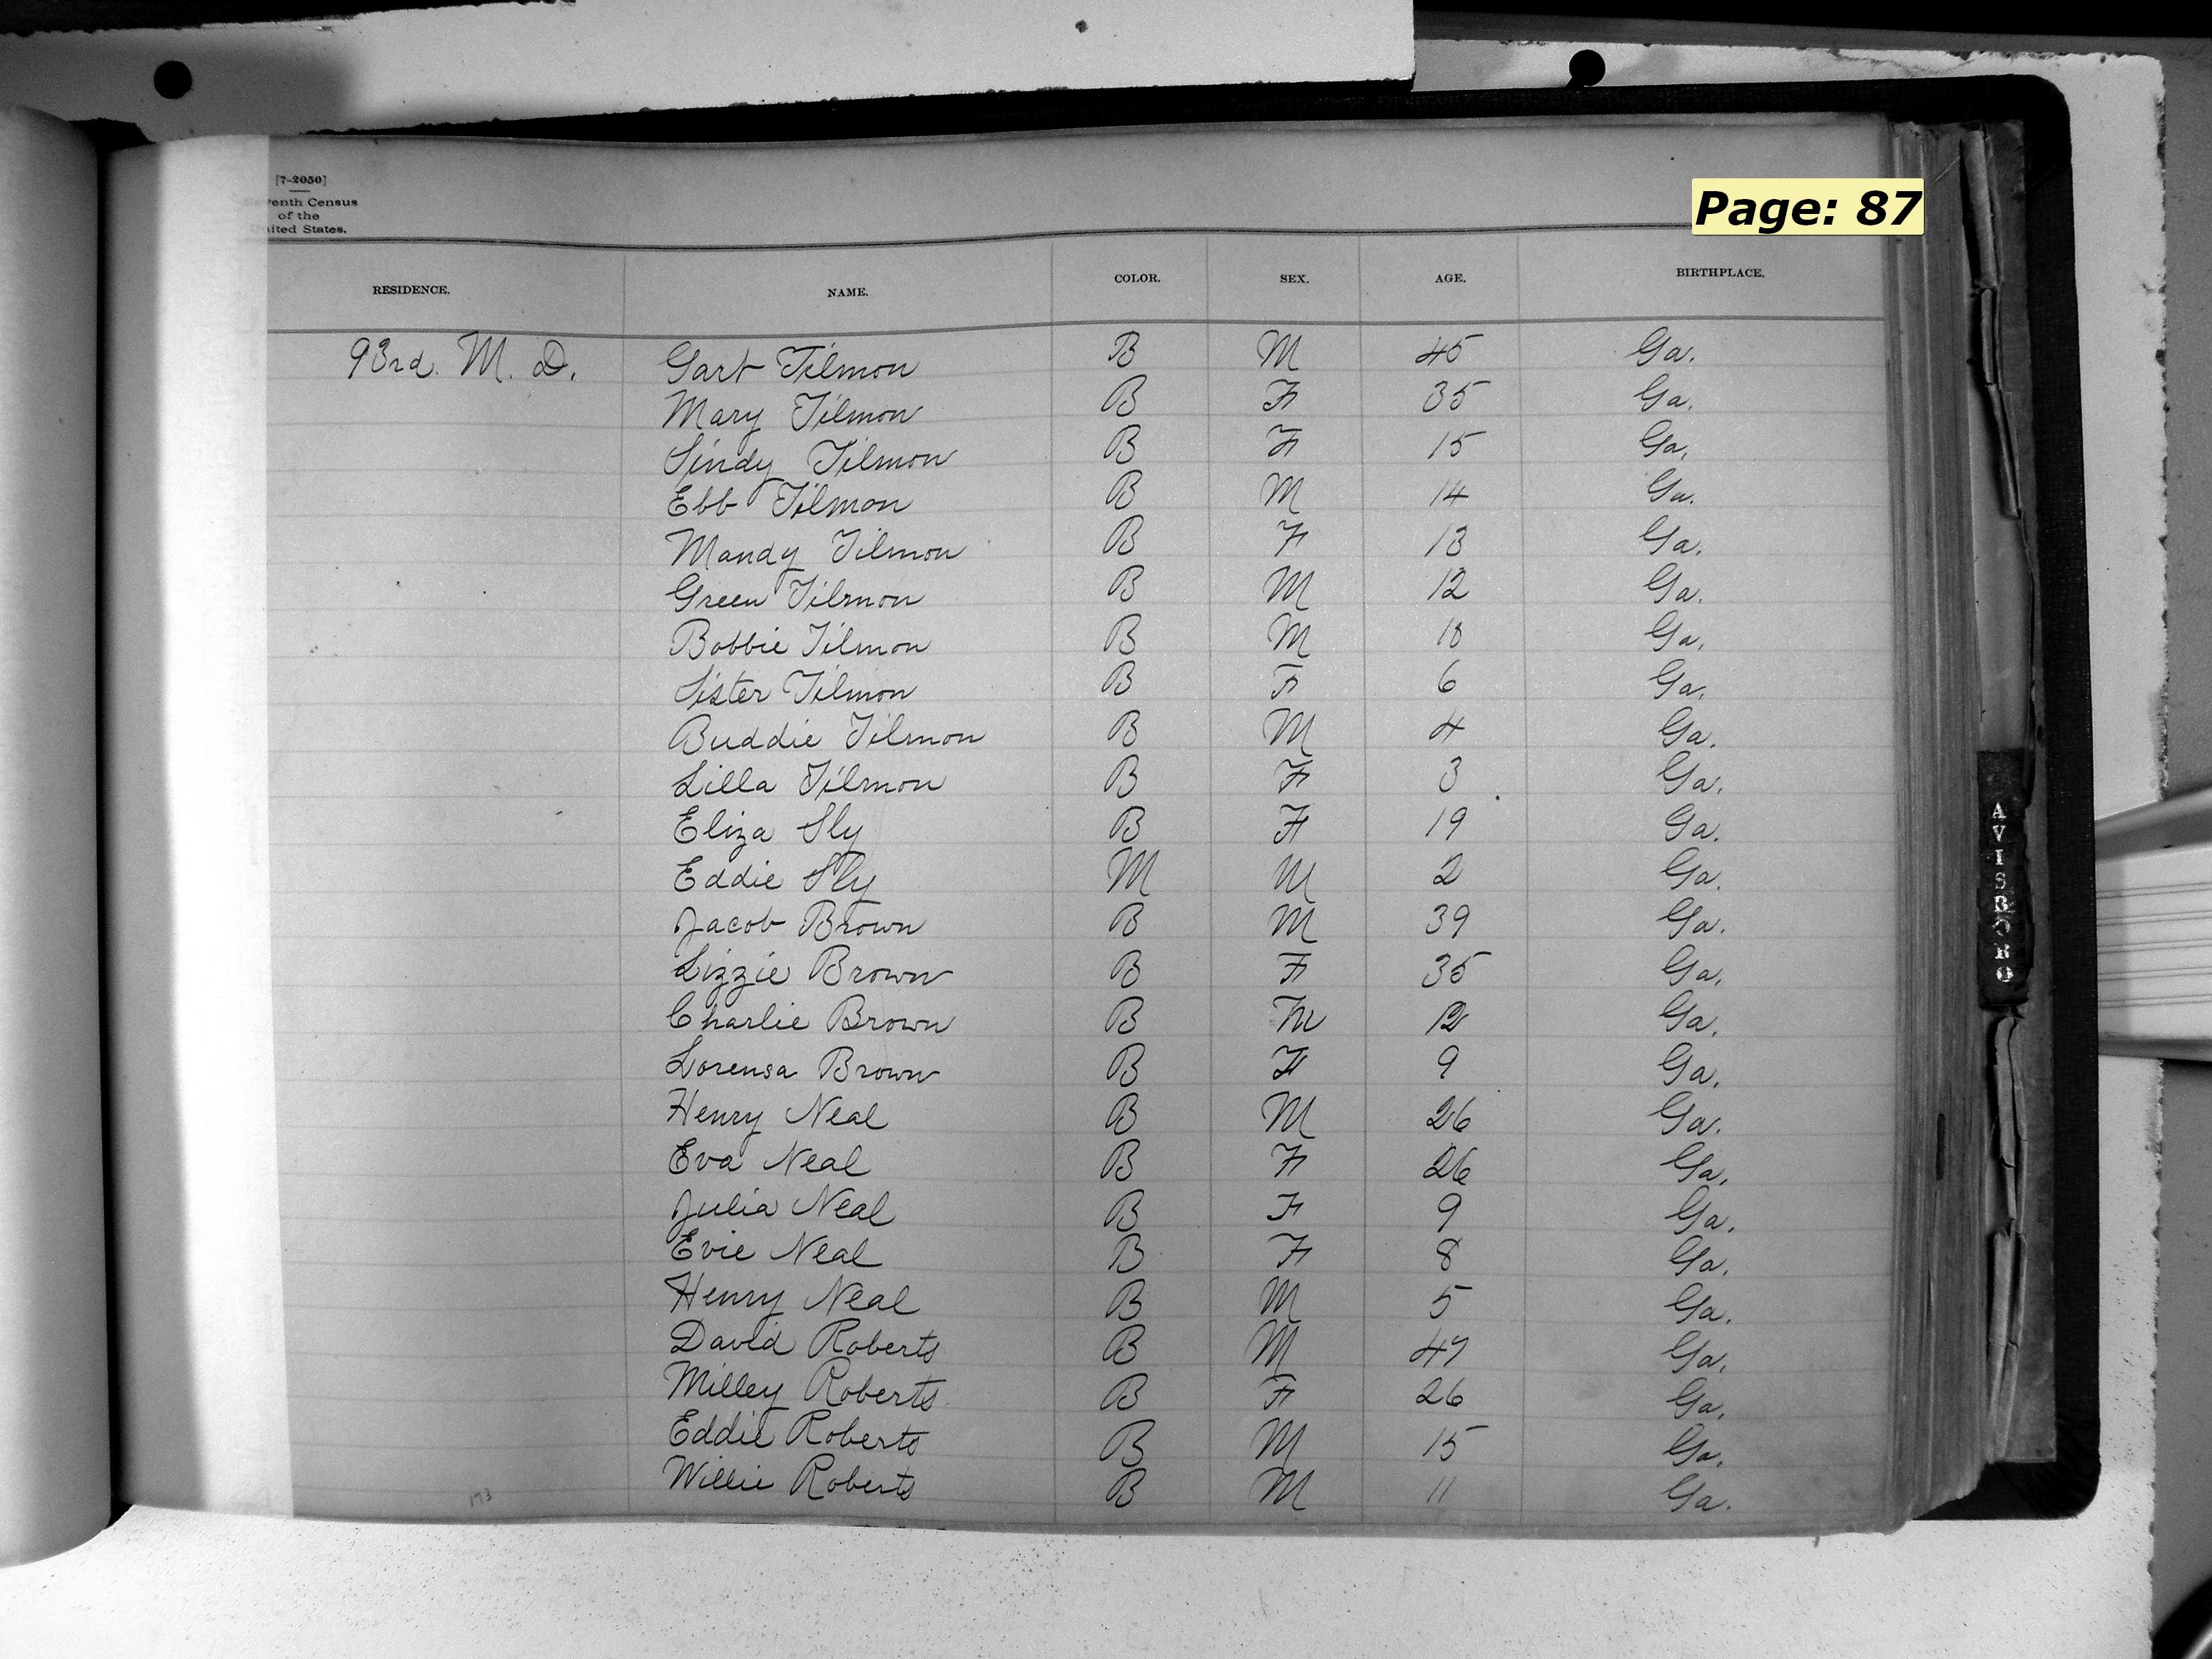 [7-2050]
venth Census
of the
nited States.
Page: 87
RESIDENCE. NAME. COLOR. SEX. AGE. BIRTHPLACE.
93rd. M. D. Gart Tilmon B M 45 Ga.
Mary Tilmon B F 35 Ga.
Sindy Tilmon B F 15 Ga.
Ebb Tilmon B M 14 Ga.
Mandy Tilmon B F 13 Ga.
Green Tilmon B M 12 Ga.
Bobbie Tilmon B M Ga.
Sister Tilmon B F 6 Ga.
Buddie Tilmon B M 4 Ga.
Lilla Tilmon B F 3 Ga.
Eliza Sly B F 19 Ga.
Eddie Sly M M 2 Ga.
Jacob Brown B M 39 Ga.
Lizzie Brown B F 35 Ga.
Charlie Brown B M 12 Ga.
Lorensa Brown B F 9 Ga.
Henry Neal B M 26 Ga.
Eva Neal B F 26 Ga.
Julia Neal B F 9 Ga.
Evie Neal B F 8 Ga.
Henry Neal B M 5 Ga.
David Roberts B M 47 Ga.
Milley Roberts B F 26 Ga.
Eddie Roberts B M 15 Ga.
Willie Roberts B M 11 Ga.
173
AVISBORO